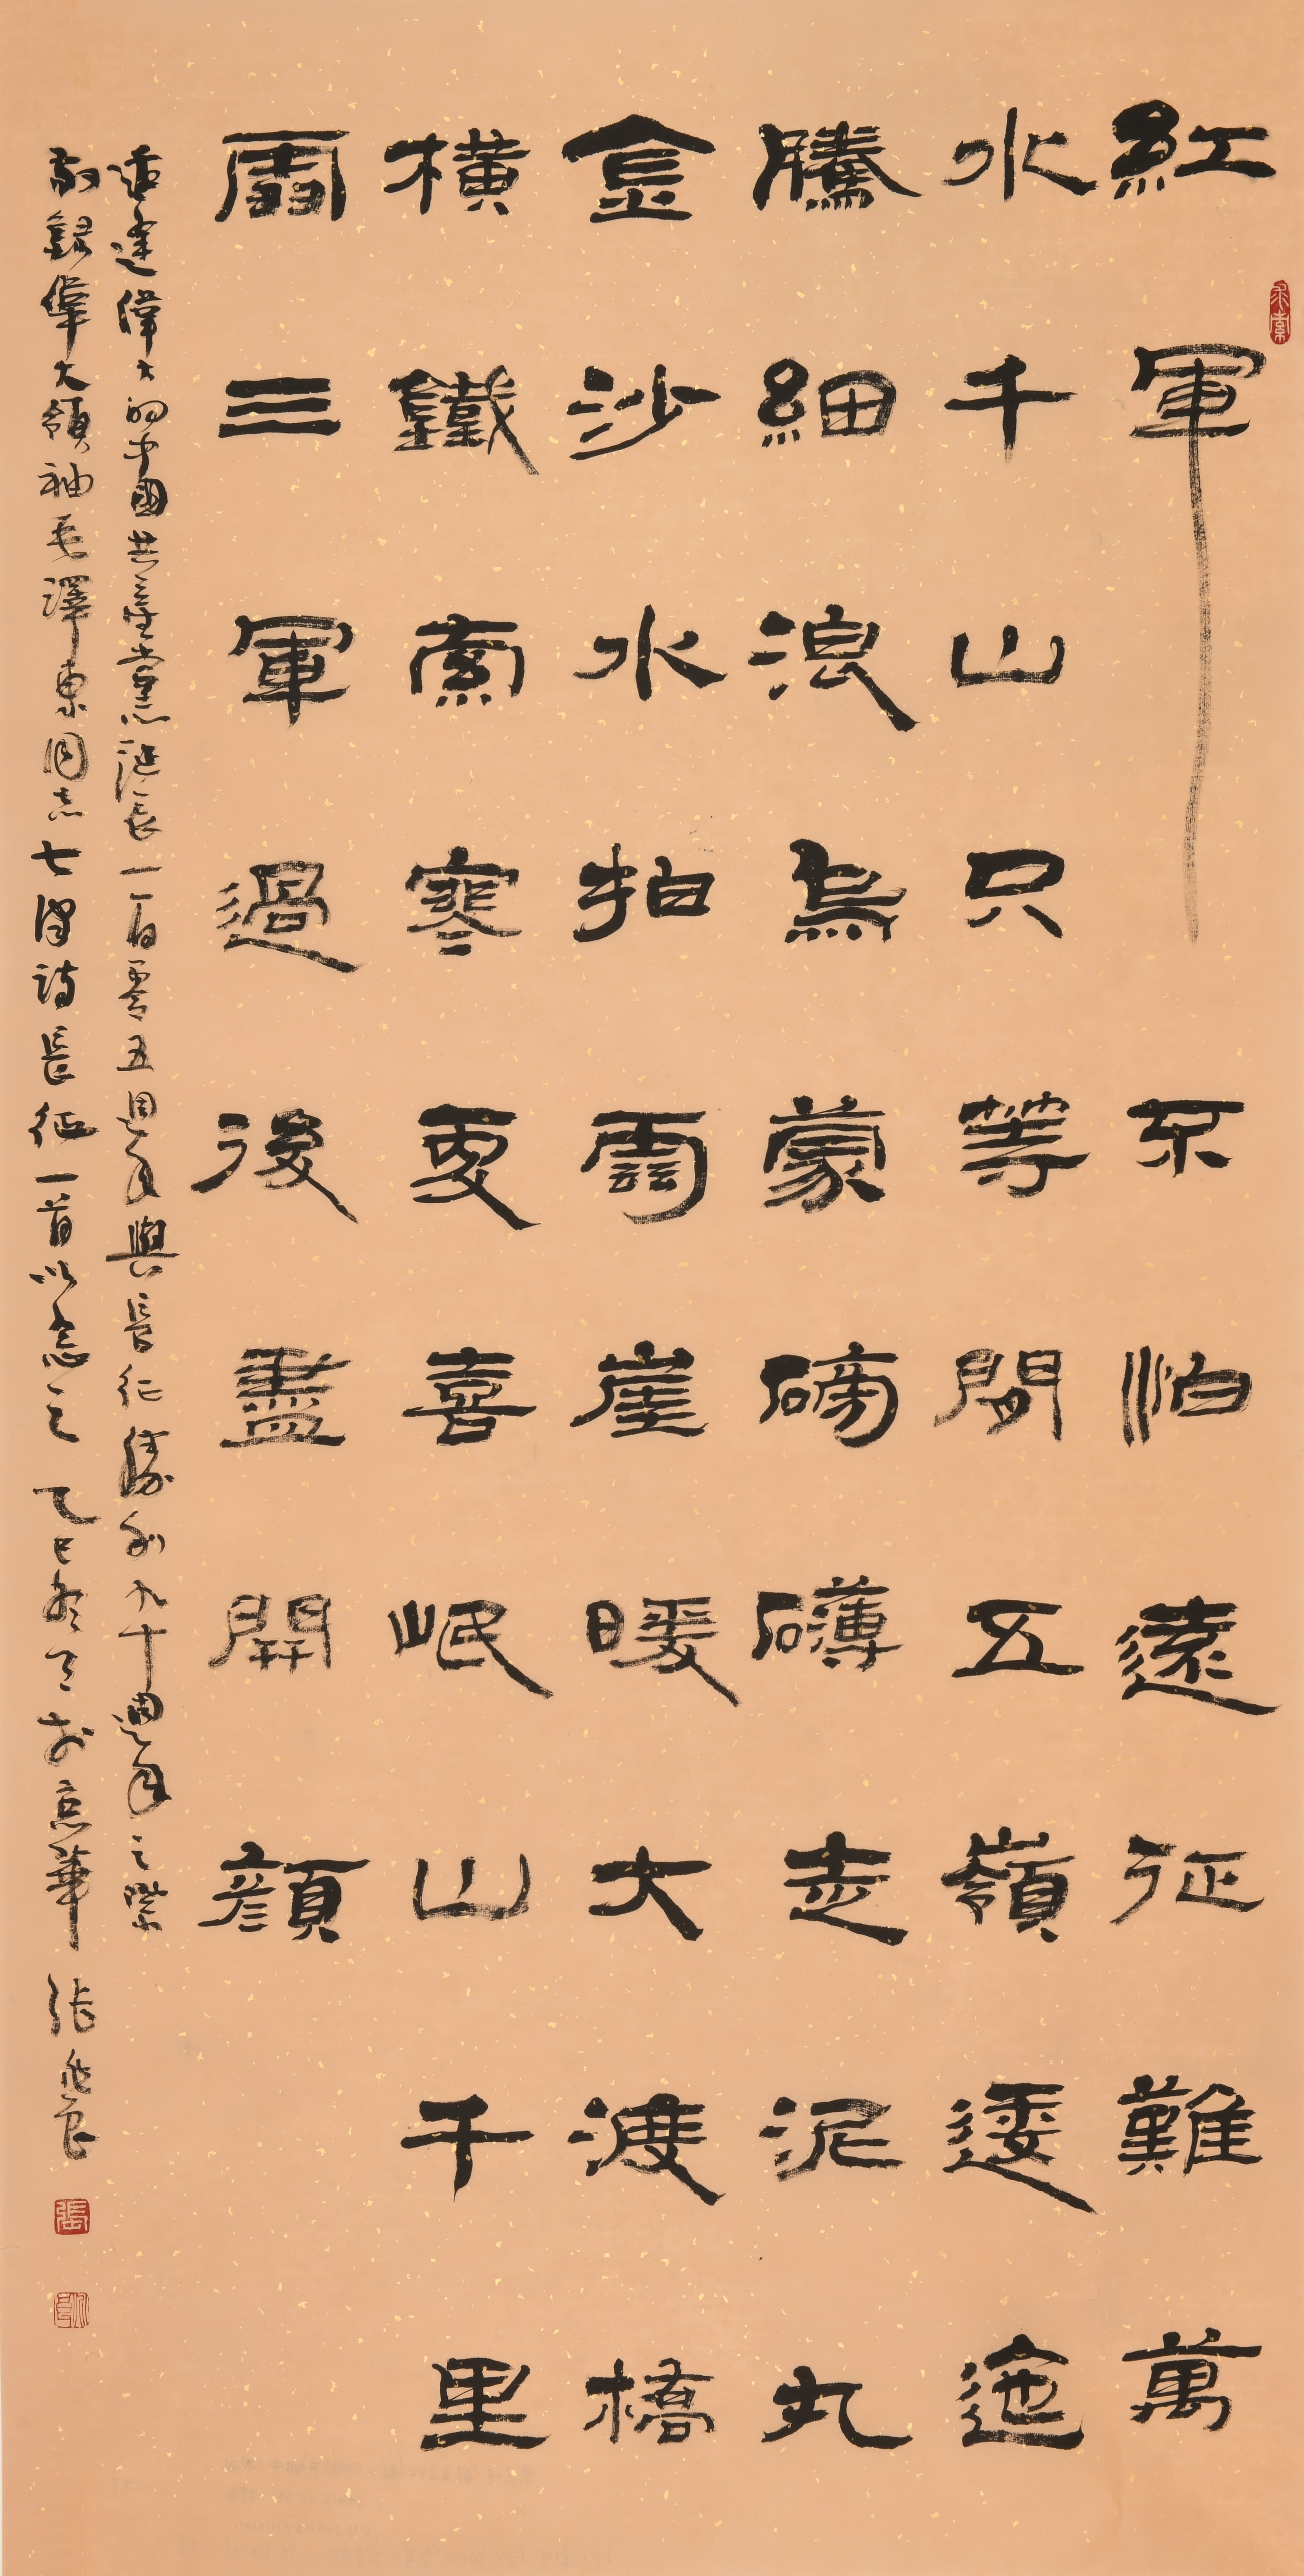 紅軍不怕遠征難萬
水千山只等閒五嶺逶迤
騰細浪烏蒙磅礴走泥丸
金沙水拍雲崖暖大渡橋
橫鐵索寒更喜岷山千里
雪三軍過後盡開顏
適逢偉大的中國共產黨誕辰一百零五周年與長征勝利九十週年之際
敬錄偉大領袖毛澤東同志七律詩長征一首以念之 乙巳 於京華 張 良